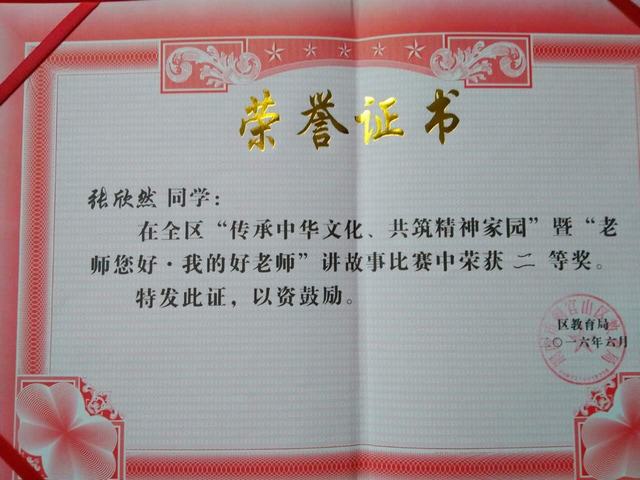 荣誉证书
张欣然 同学：
在全区“传承中华文化、共筑精神家园”暨“老
师您好·我的好老师”讲故事比赛中荣获 二 等奖。
特发此证，以资鼓励。
区教育局
二〇一六年六月